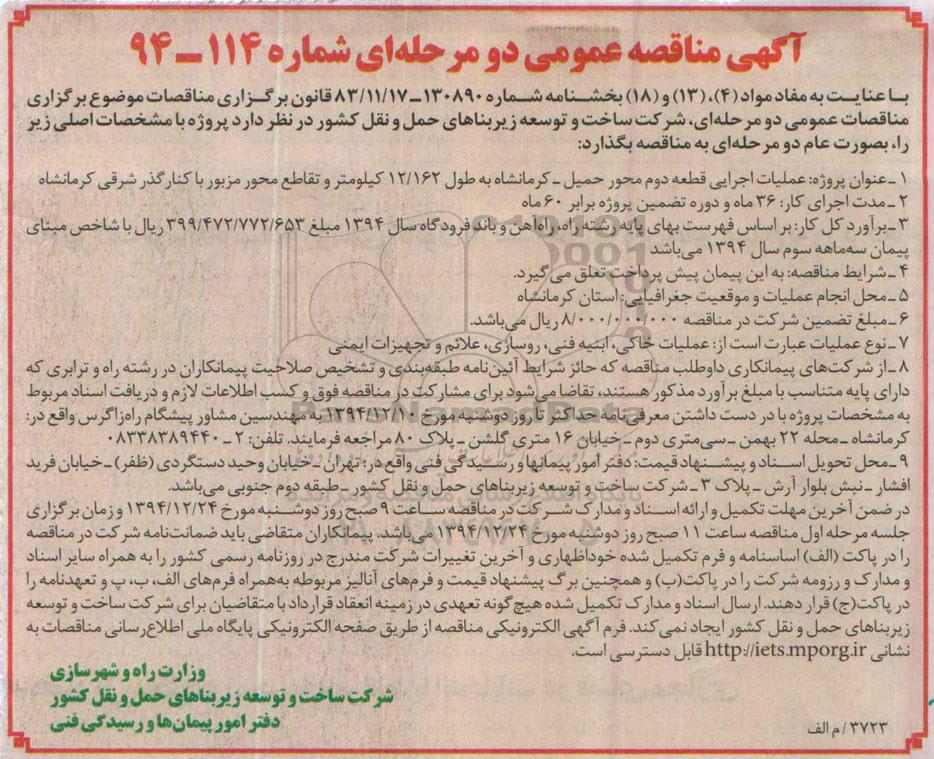 آگهی مناقصه عمومی دو مرحله‌ای شماره ۱۱۴ـ۹۴
با عنایت به مفاد مواد (۴)، (۱۳) و (۱۸) بخشنامه شماره ۱۳۰۸۹۰ـ۸۳/۱۱/۱۷ قانون برگزاری مناقصات موضوع برگزاری
مناقصات عمومی دو مرحله‌ای، شرکت ساخت و توسعه زیربناهای حمل و نقل کشور در نظر دارد پروژه با مشخصات اصلی زیر
را، بصورت عام دو مرحله‌ای به مناقصه بگذارد:
۱ـ عنوان پروژه: عملیات اجرایی قطعه دوم محور حمیل ـ کرمانشاه به طول ۱۲/۱۶۲ کیلومتر و تقاطع محور مزبور با کنارگذر شرقی کرمانشاه
۲ـ مدت اجرای کار: ۳۶ ماه و دوره تضمین پروژه برابر ۶۰ ماه
۳ـ برآورد کل کار: بر اساس فهرست بهای پایه رشته راه، راه‌آهن و باند فرودگاه سال ۱۳۹۴ مبلغ ۳۹۹/۴۷۲/۷۷۲/۶۵۳ ریال با شاخص مبنای
پیمان سه‌ماهه سوم سال ۱۳۹۴ می‌باشد
۴ـ شرایط مناقصه: به این پیمان پیش پرداخت تعلق می‌گیرد.
۵ـ محل انجام عملیات و موقعیت جغرافیایی: استان کرمانشاه
۶ـ مبلغ تضمین شرکت در مناقصه ۸/۰۰۰/۰۰۰/۰۰۰ ریال می‌باشد.
۷ـ نوع عملیات عبارت است از: عملیات خاکی، ابنیه فنی، روسازی، علائم و تجهیزات ایمنی
۸ـ از شرکت‌های پیمانکاری داوطلب مناقصه که حائز شرایط آئین‌نامه طبقه‌بندی و تشخیص صلاحیت پیمانکاران در رشته راه و ترابری که
دارای پایه متناسب با مبلغ برآورد مذکور هستند، تقاضا می‌شود برای مشارکت در مناقصه فوق و کسب اطلاعات لازم و دریافت اسناد مربوط
به مشخصات پروژه با در دست داشتن معرفی‌نامه حداکثر تا روز دوشنبه مورخ ۱۳۹۴/۱۲/۱۰ به مهندسین مشاور پیشگام راه‌زاگرس واقع در:
کرمانشاه ـ محله ۲۲ بهمن ـ سی‌متری دوم ـ خیابان ۱۶ متری گلشن ـ پلاک ۸۰ مراجعه فرمایند. تلفن: ۲ ـ ۰۸۳۳۸۳۸۹۴۴۰
۹ـ محل تحویل اسناد و پیشنهاد قیمت: دفتر امور پیمانها و رسیدگی فنی واقع در: تهران ـ خیابان وحید دستگردی (ظفر) ـ خیابان فرید
افشار ـ نبش بلوار آرش ـ پلاک ۳ ـ شرکت ساخت و توسعه زیربناهای حمل و نقل کشور ـ طبقه دوم جنوبی می‌باشد.
در ضمن آخرین مهلت تکمیل و ارائه اسناد و مدارک شرکت در مناقصه ساعت ۹ صبح روز دوشنبه مورخ ۱۳۹۴/۱۲/۲۴ و زمان برگزاری
جلسه مرحله اول مناقصه ساعت ۱۱ صبح روز دوشنبه مورخ ۱۳۹۴/۱۲/۲۴ می‌باشد. پیمانکاران متقاضی باید ضمانت‌نامه شرکت در مناقصه
را در پاکت (الف) اساسنامه و فرم تکمیل شده خوداظهاری و آخرین تغییرات شرکت مندرج در روزنامه رسمی کشور را به همراه سایر اسناد
و مدارک و رزومه شرکت را در پاکت(ب) و همچنین برگ پیشنهاد قیمت و فرم‌های آنالیز مربوطه به‌همراه فرم‌های الف، ب، پ و تعهدنامه را
در پاکت(ج) قرار دهند. ارسال اسناد و مدارک تکمیل شده هیچ‌گونه تعهدی در زمینه انعقاد قرارداد با متقاضیان برای شرکت ساخت و توسعه
زیربناهای حمل و نقل کشور ایجاد نمی‌کند. فرم آگهی الکترونیکی مناقصه از طریق صفحه الکترونیکی پایگاه ملی اطلاع‌رسانی مناقصات به
نشانی http://iets.mporg.ir قابل دسترسی است.
وزارت راه و شهرسازی
شرکت ساخت و توسعه زیربناهای حمل و نقل کشور
دفتر امور پیمان‌ها و رسیدگی فنی
۳۷۲۳ / م الف